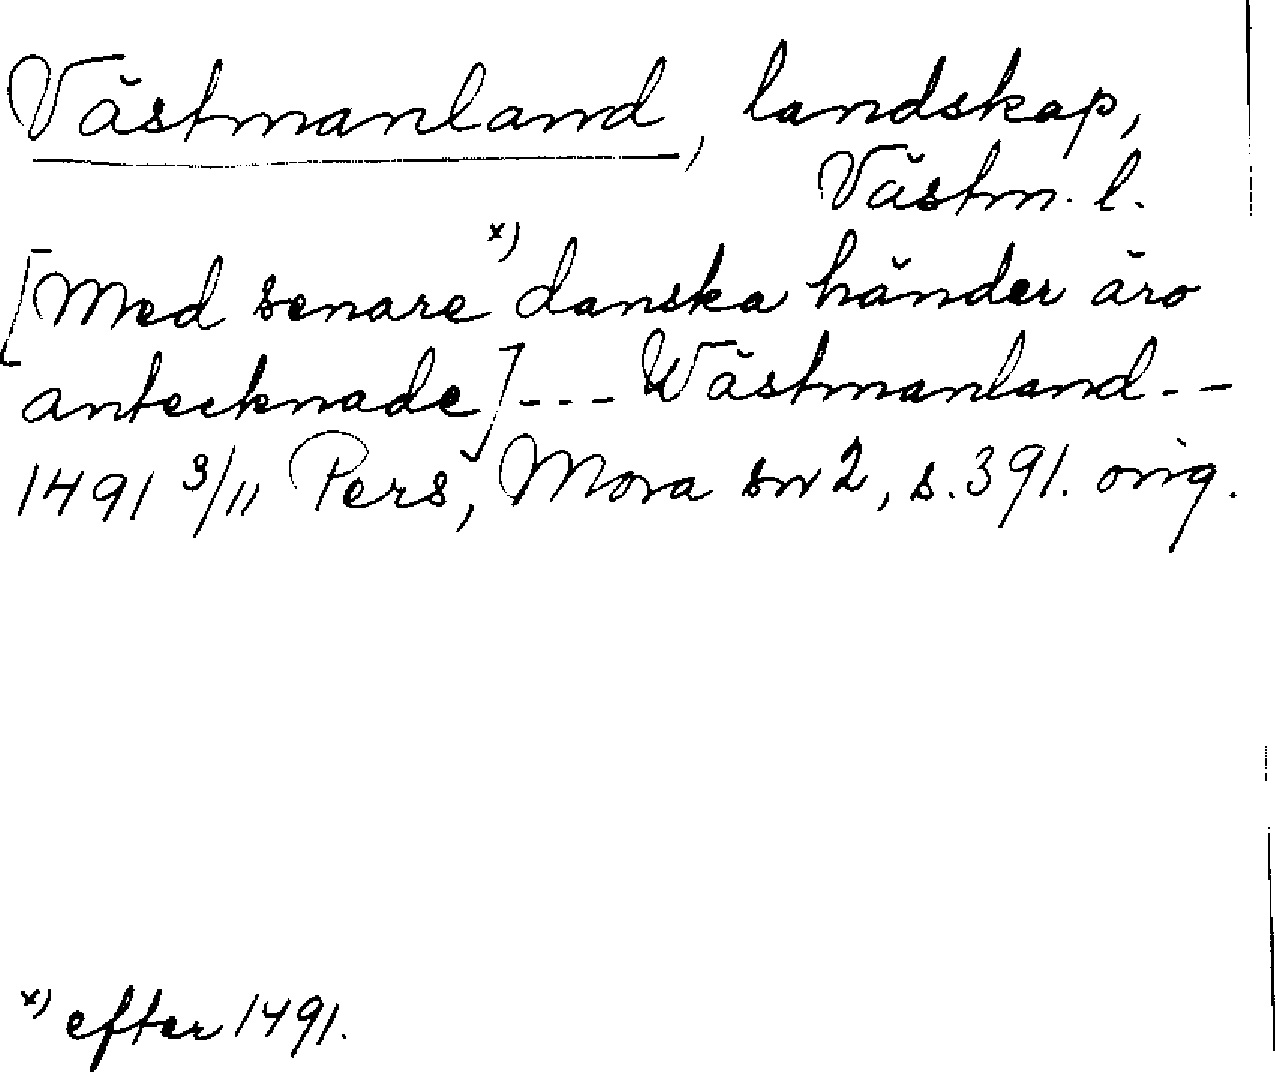 Västmanland, landskap,
Västm. l.
[Med senare x) danska händer äro
antecknade] --- Wästmanland --
1491 3/11 Pers, Mora sn 2, s. 391. orig.
x) efter 1491.